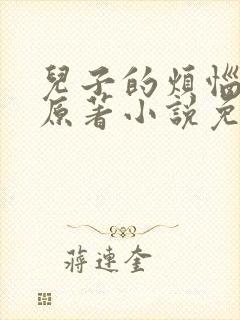 兒子的煩惱
原著小說免
蔣連奎